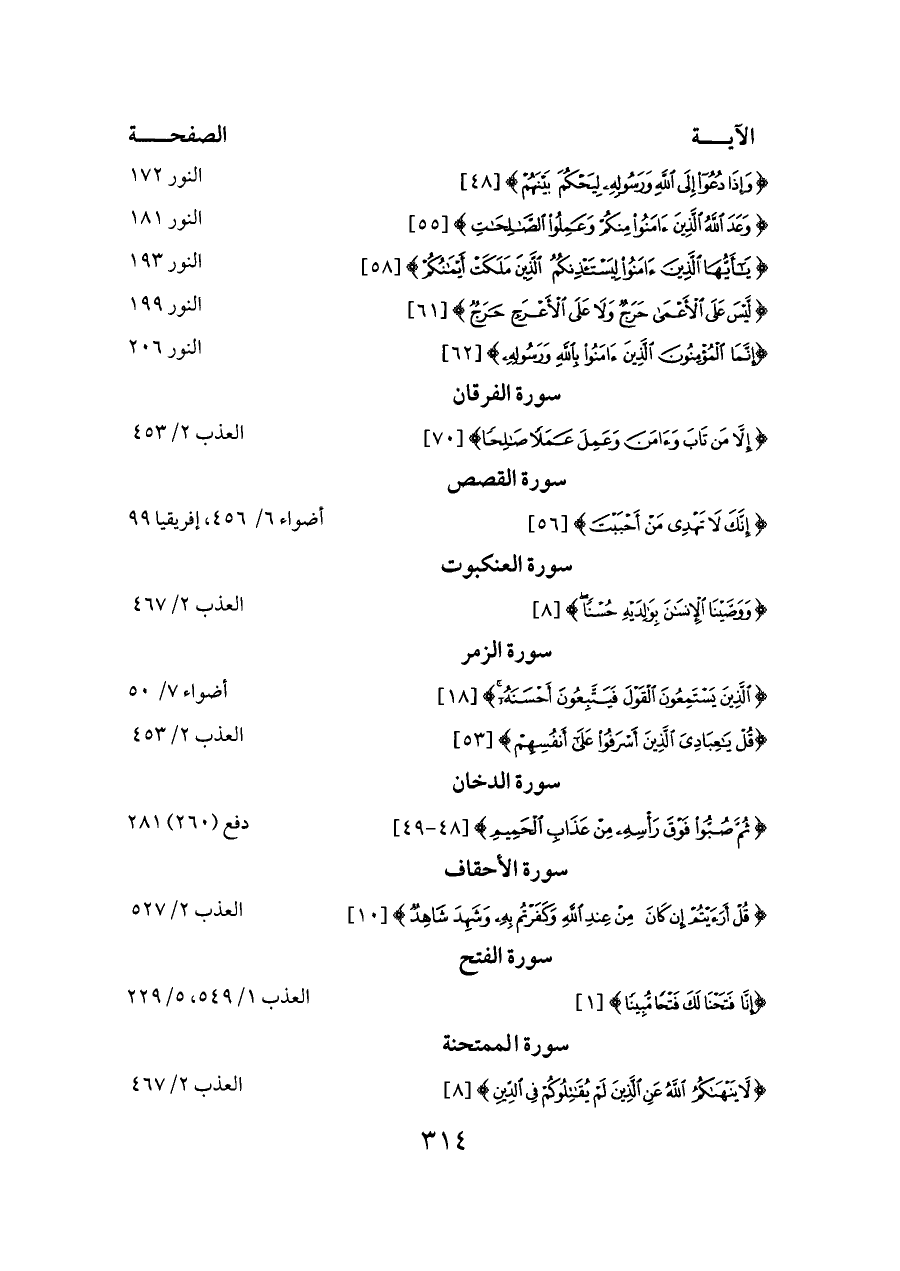 الآيــــة الصفحــــــة
﴿ وَإِذَا دُعُوٓا۟ إِلَى ٱللَّهِ وَرَسُولِهِۦ لِيَحْكُمَ بَيْنَهُمْ ﴾ [٤٨] النور ١٧٢
﴿ وَعَدَ ٱللَّهُ ٱلَّذِينَ ءَامَنُوا۟ مِنكُمْ وَعَمِلُوا۟ ٱلصَّٰلِحَٰتِ ﴾ [٥٥] النور ١٨١
﴿ يَٰٓأَيُّهَا ٱلَّذِينَ ءَامَنُوا۟ لِيَسْتَـْٔذِنكُمُ ٱلَّذِينَ مَلَكَتْ أَيْمَٰنُكُمْ ﴾ [٥٨] النور ١٩٣
﴿ لَّيْسَ عَلَى ٱلْأَعْمَىٰ حَرَجٌ وَلَا عَلَى ٱلْأَعْرَجِ حَرَجٌ ﴾ [٦١] النور ١٩٩
﴿إِنَّمَا ٱلْمُؤْمِنُونَ ٱلَّذِينَ ءَامَنُوا۟ بِٱللَّهِ وَرَسُولِهِۦ ﴾ [٦٢] النور ٢٠٦
سورة الفرقان
﴿ إِلَّا مَن تَابَ وَءَامَنَ وَعَمِلَ عَمَلًا صَٰلِحًا﴾ [٧٠] العذب ٢/ ٤٥٣
سورة القصص
﴿ إِنَّكَ لَا تَهْدِى مَنْ أَحْبَبْتَ ﴾ [٥٦] أضواء ٦/ ٤٥٦، إفريقيا ٩٩
سورة العنكبوت
﴿ وَوَصَّيْنَا ٱلْإِنسَٰنَ بِوَٰلِدَيْهِ حُسْنًاۖ ﴾ [٨] العذب ٢/ ٤٦٧
سورة الزمر
﴿ ٱلَّذِينَ يَسْتَمِعُونَ ٱلْقَوْلَ فَيَتَّبِعُونَ أَحْسَنَهُۥٓۚ ﴾ [١٨] أضواء ٧/ ٥٠
﴿قُلْ يَٰعِبَادِىَ ٱلَّذِينَ أَسْرَفُوا۟ عَلَىٰٓ أَنفُسِهِمْ ﴾ [٥٣] العذب ٢/ ٤٥٣
سورة الدخان
﴿ ثُمَّ صُبُّوا۟ فَوْقَ رَأْسِهِۦ مِنْ عَذَابِ ٱلْحَمِيمِ ﴾ [٤٨-٤٩] دفع (٢٦٠) ٢٨١
سورة الأحقاف
﴿ قُلْ أَرَءَيْتُمْ إِن كَانَ مِنْ عِندِ ٱللَّهِ وَكَفَرْتُم بِهِۦ وَشَهِدَ شَاهِدٌ ﴾ [١٠] العذب ٢/ ٥٢٧
سورة الفتح
﴿إِنَّا فَتَحْنَا لَكَ فَتْحًا مُّبِينًا ﴾ [١] العذب ١/ ٥٤٩، ٥/ ٢٢٩
سورة الممتحنة
﴿ لَّا يَنْهَىٰكُمُ ٱللَّهُ عَنِ ٱلَّذِينَ لَمْ يُقَٰتِلُوكُمْ فِى ٱلدِّينِ ﴾ [٨] العذب ٢/ ٤٦٧
٣١٤